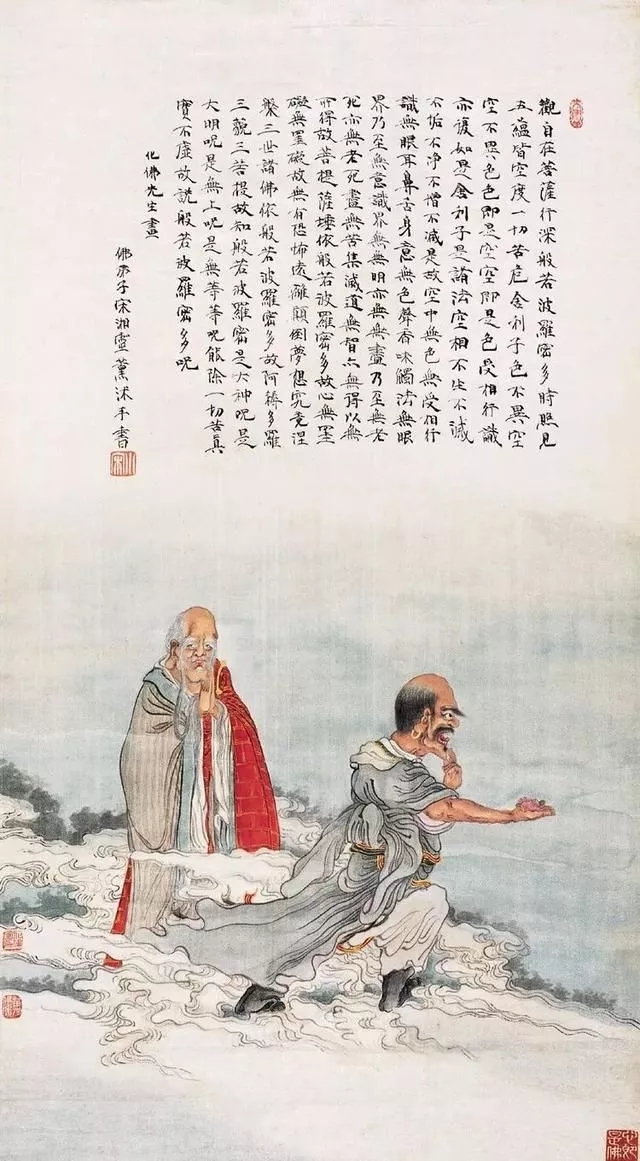 觀自在菩薩行深般若波羅蜜多時照見
五蘊皆空度一切苦厄舍利子色不異空
空不異色色即是空空即是色受相行識
亦復如是舍利子是諸法空相不生不滅
不垢不淨不增不減是故空中無色無受相行
識無眼耳鼻舌身意無色聲香味觸法無眼
界乃至無意識界無無明亦無無盡乃至無老
死亦無老死盡無苦集滅道無智亦無得以無
所得故菩提薩埵依般若波羅蜜多故心無罣
礙無罣礙故無有恐怖遠離顛倒夢想究竟涅
槃三世諸佛依般若波羅蜜多故阿耨多羅
三藐三菩提故知般若波羅蜜是大神呪是
大明呪是無上呪是無等等呪能除一切苦真
實不虛故說般若波羅蜜多呪
化佛先生畫
佛弟子宋湘靈薰沐手書